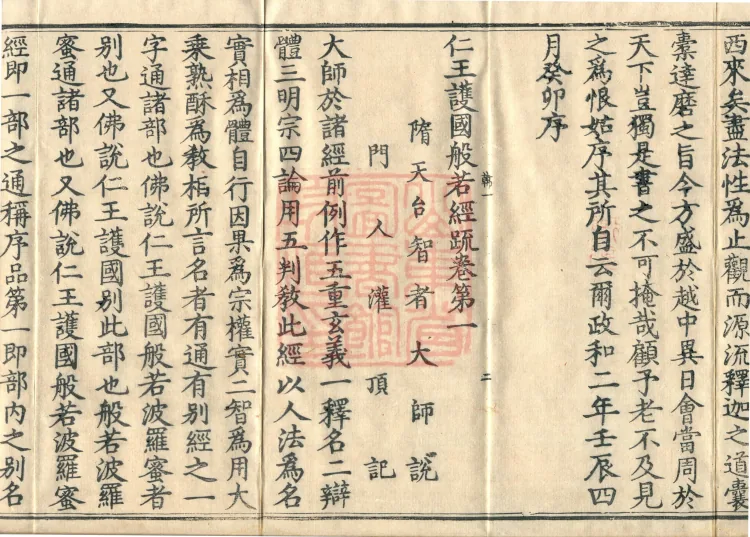 西來矣盡法性爲止觀而源流釋迦之道囊
橐達磨之旨今方盛於越中異日會當周於
天下豈獨是書之不可掩哉顧予老不及見
之爲恨姑序其所自云爾政和二年壬辰四
月癸卯序
仁王護國般若經疏卷第一
隋天台智者大師說
門人灌頂記
大師於諸經前例作五重玄義一釋名二辯
體三明宗四論用五判教此經以人法爲名
實相爲體自行因果爲宗權實二智爲用大
乘熟酥爲教相所言名者有通有別經之一
字通諸部也佛說仁王護國般若波羅蜜者
別也又佛說仁王護國別此部也般若波羅
蜜通諸部也又佛說仁王護國般若波羅蜜
經即一部之通稱序品第一即部內之別名